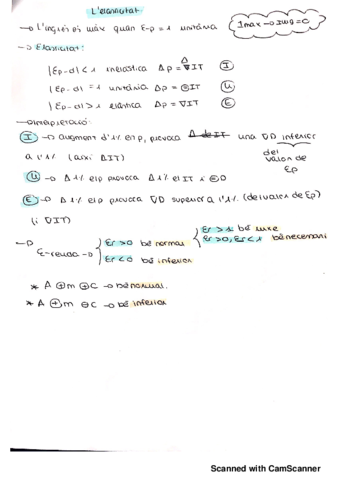 L'elasticitat.
→ L'ingrés és màx quan Ep=1 unitària
Imax → IMg=0
→ Elasticitat:
|Ep-d| < 1 inelàstica Δp = ΔIT (I)
|Ep-d| = 1 unitària Δp = ⊜IT (U)
|Ep-d| > 1 elàstica Δp = ∇IT (E)
→ interpretació:
(I) → augment d'1% en p, provoca una ∇D inferior
a l'1% (així ΔIT) del valor de Ep
(U) → Δ1% en p provoca Δ1% el IT
(E) → Δ1% en p provoca ∇D superior a l'1% (del valor de Ep)
(i ∇IT)
E-renda → Er > 0 bé normal Er > 1 bé luxe
Er > 0, Er < 1 bé necessari
Er < 0 bé inferior
* A ⊕ m ⊕ C → bé normal.
* A ⊕ m ⊖ C → bé inferior
Scanned with CamScanner